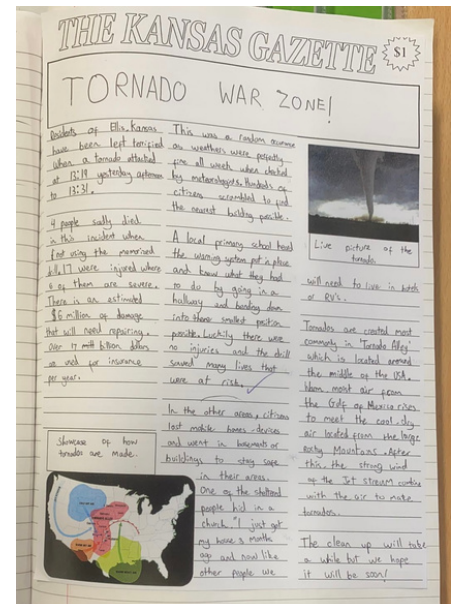 THE KANSAS GAZETTE
$1
TORNADO WAR ZONE!
Residents of Ellis, Kansas
have been left terrified
when a tornado attacked
at 13:19 yesterday afternoon
to 13:31.
4 people sadly died
in this incident when
not using the memorised
drills. 17 were injured where
4 of them are severe.
There is an estimated
$6 million of damage
that will need repairing.
Over 17 billion dollars
is used for insurance
per year.
Showcase of how
tornados are made.
This was a random occurence
as weathers were perfectly
fine all week when checked
by meteorologists. Hundreds of
citizens scrambled to find
the nearest building possible.
A local primary school heard
the warning system put in place
and knew what they had
to do by going in a
hallway and bending down
into there smallest position
possible. Luckily there were
no injuries and the drill
saved many lives that
were at risk.
In the other areas, citizens
lost mobile homes, devices
and went in basements or
buildings to stay safe
in their areas.
One of the
people hid in a
church. "I just got
my house 3 months
ago and now like
other people we
Live picture of the
tornado.
will need to live in hotels
or RV's.
Tornados are created most
commonly in 'Tornado Alley'
which is located around
the middle of the USA.
Warm moist air from
the Gulf of Mexico rises
to meet the cool, dry
air located from the large
Rocky Mountains. After
this, the strong wind
of the Jet stream combine
with the air to make
tornados.
The clean up will take
a while but we hope
it will be soon!